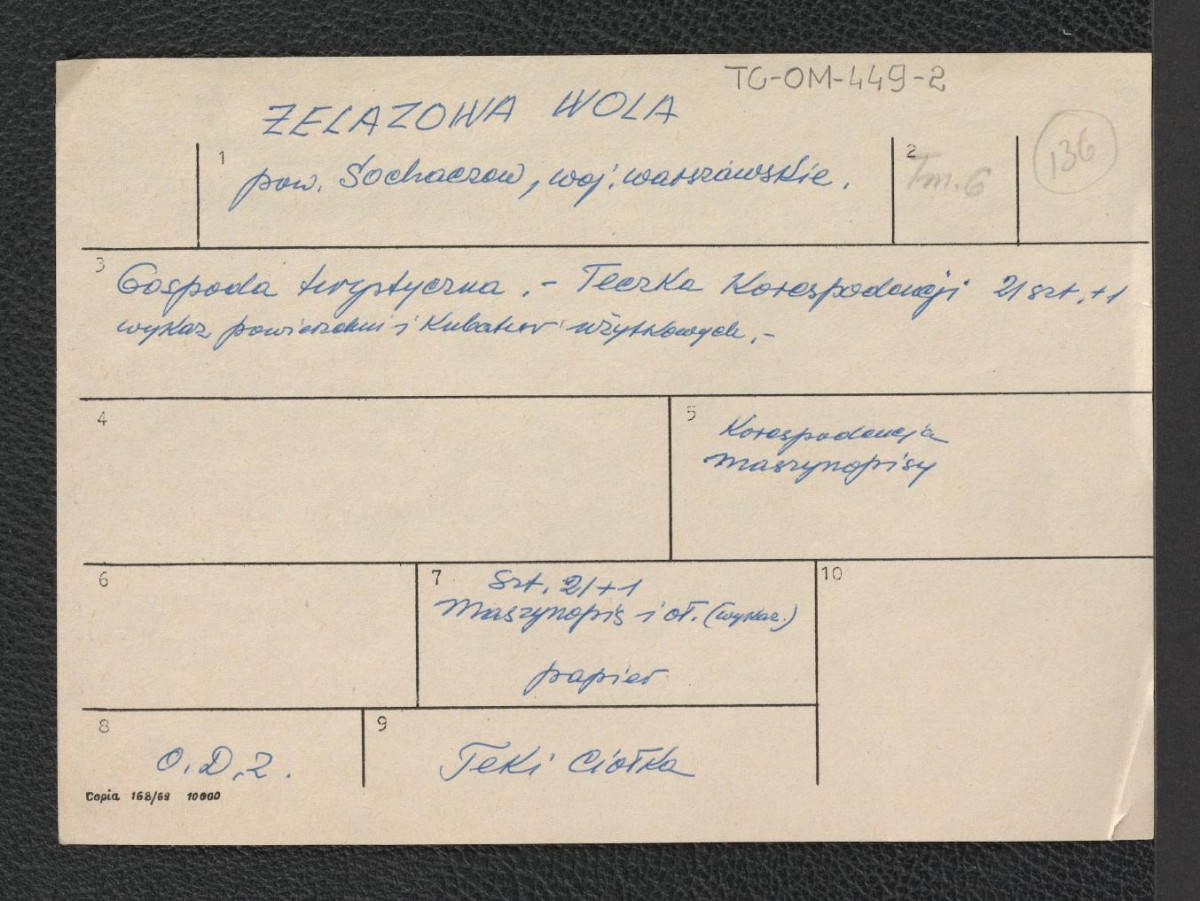 TC-OM-449-2
ZELAZOWA WOLA
1 pow. Sochaczew, woj. warszawskie.
2 Tm. 6
136
3 Gospoda turystyczna. – Teczka Korespodencji 21 szt. + 1
wykaz powierzchni i Kubatur użytkowych. –
4
5 Korespodencja
maszynopisy
6
7 Szt. 21 + 1
Maszynopis i oł. (wykaz.)
papier
10
8 O.D.Z.
9 Teki Ciołka
Copia 168/69 10000